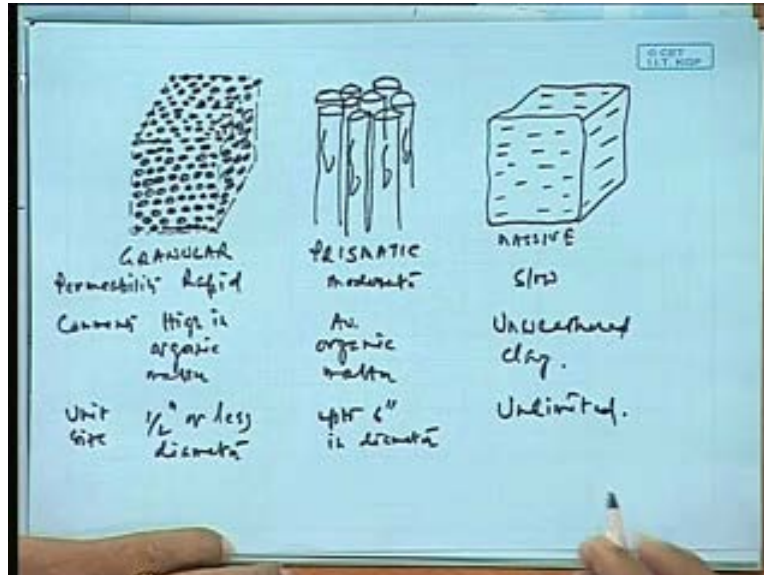 © CET
I.I.T. KGP
GRANULAR PRISMATIC MASSIVE
Permeability Rapid moderate Slow
Comment High in organic matter Av. organic matter Unweathered clay.
Unit size 1/2" or less diameter upto 6" in diameter Unlimited.